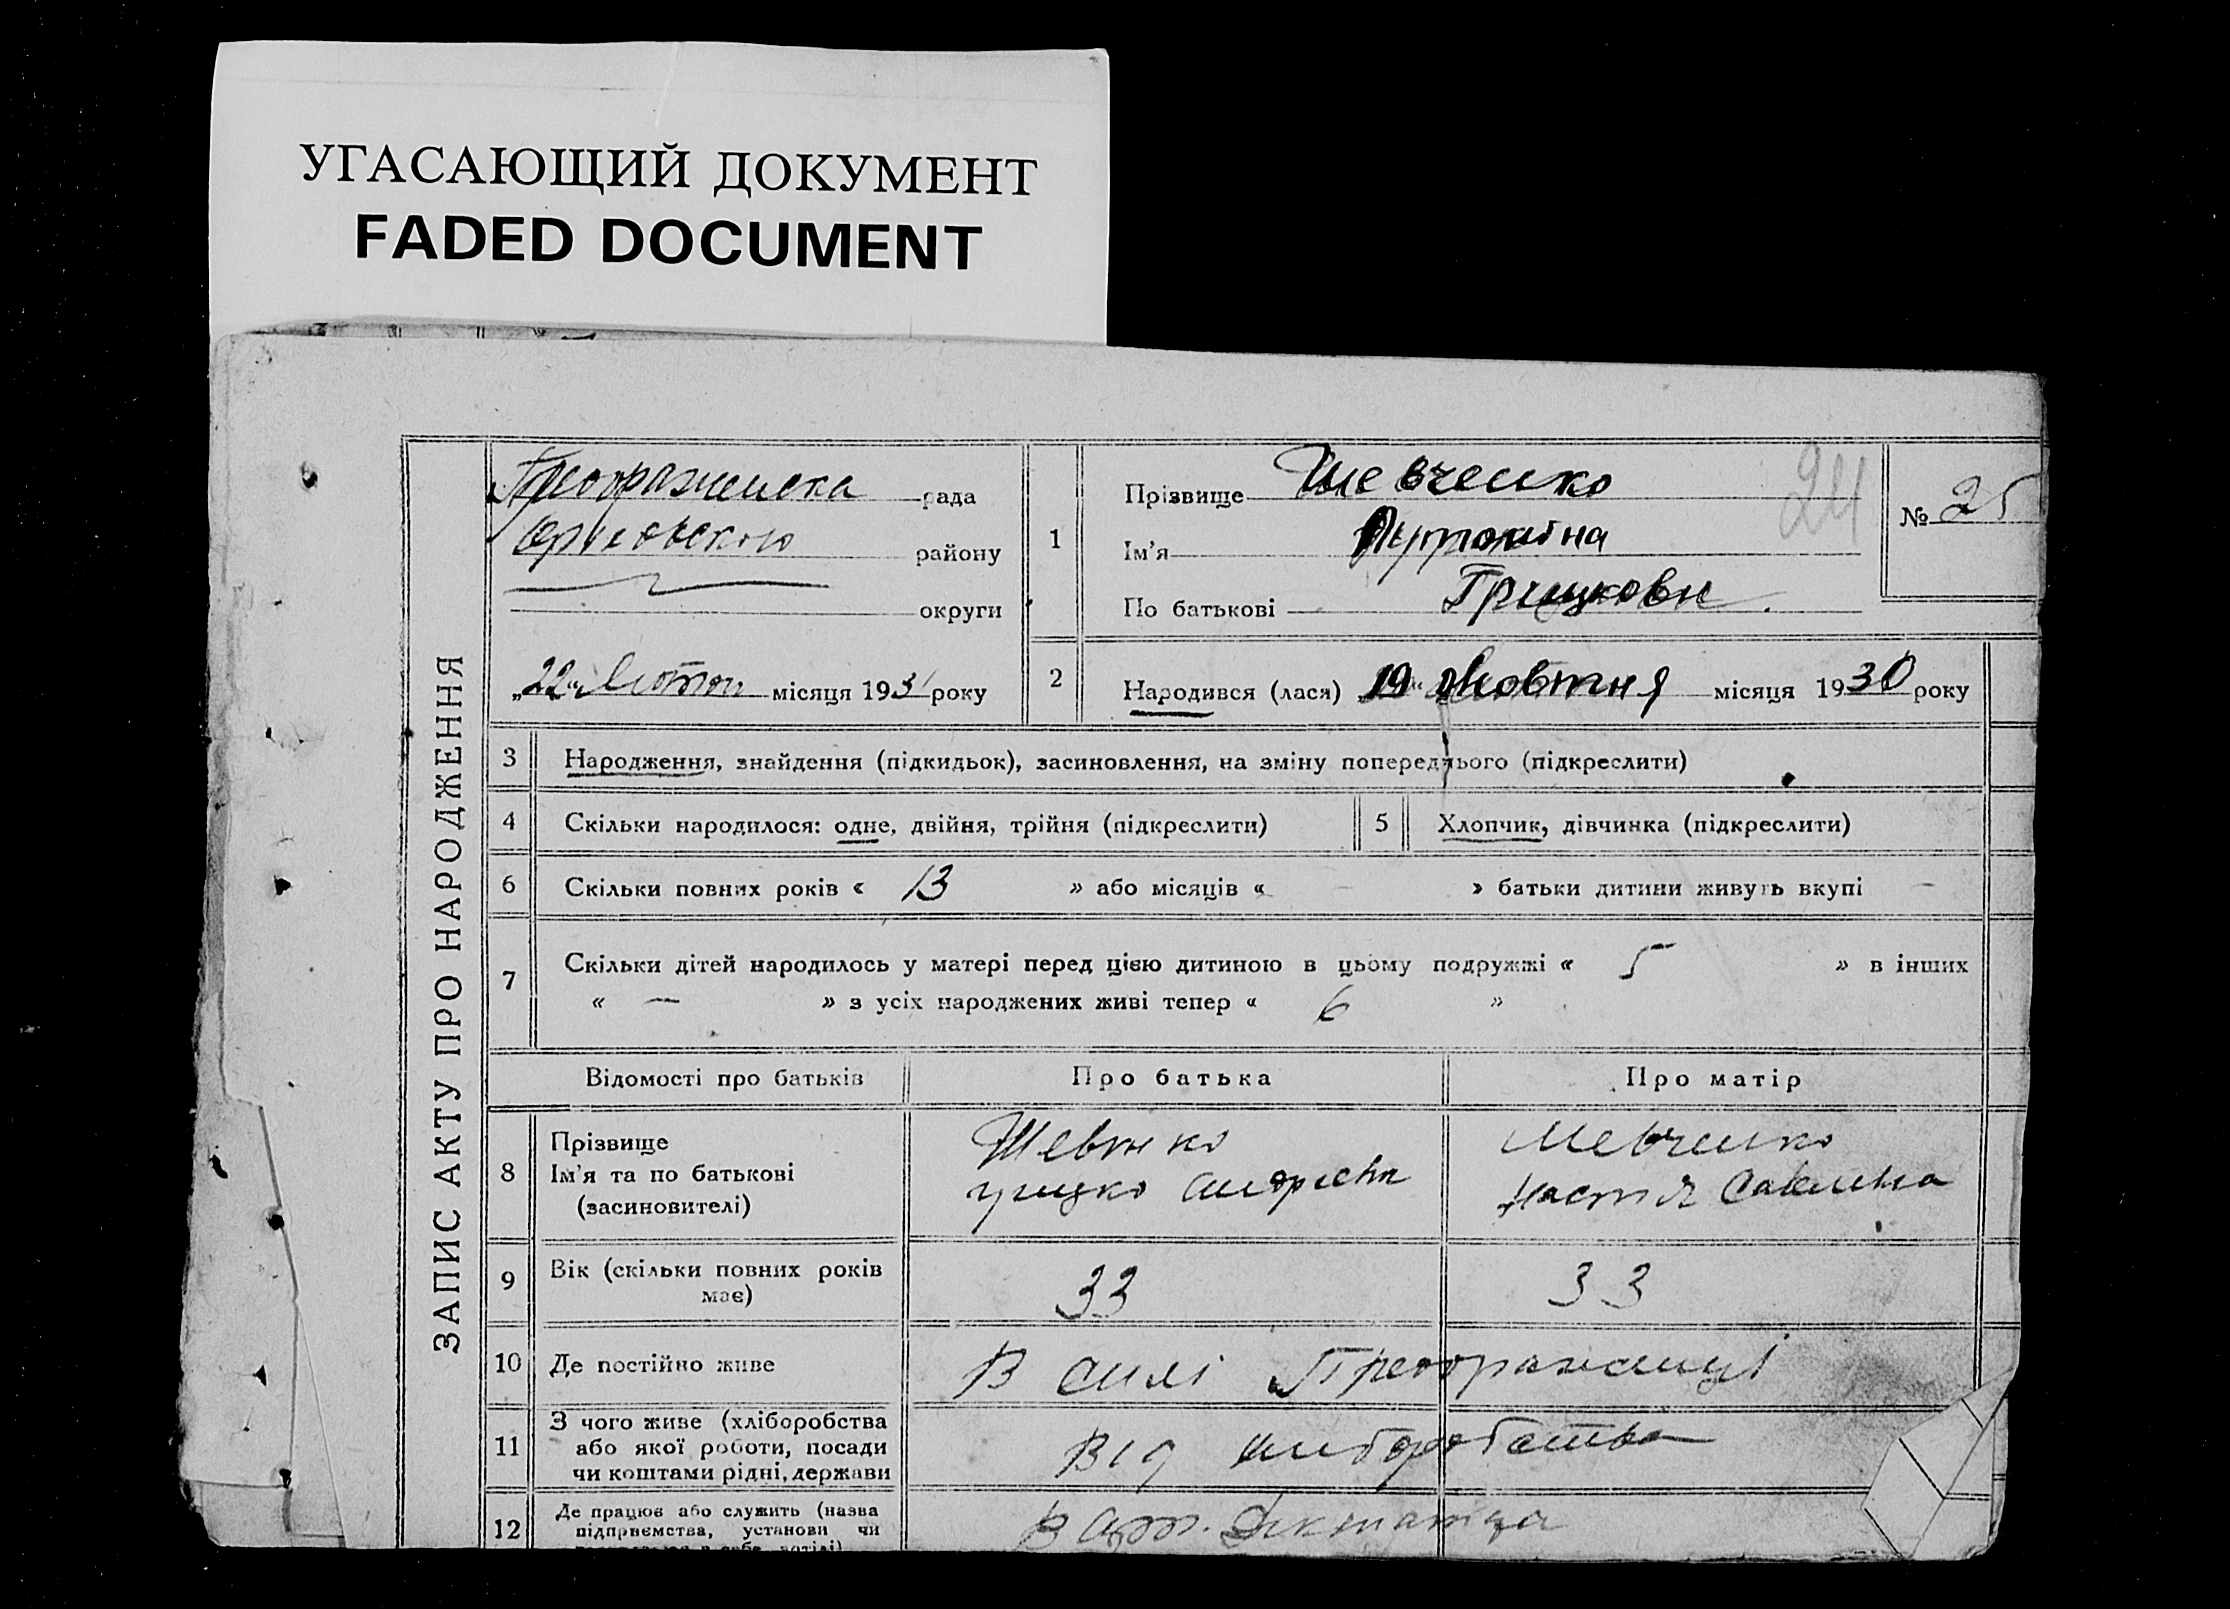 УГАСАЮЩИЙ ДОКУМЕНТ
FADED DOCUMENT
ЗАПИС АКТУ ПРО НАРОДЖЕННЯ
Преображенска рада
району
округи
„22“ Лютого місяця 1931 року
1
Прізвище Шевченко
Ім’я
По батькові Грицкови
24
№ 25
2
Народився (лася) „19“ Жовтня місяця 1930 року
3 Народження, знайдення (підкидьок), засиновлення, на зміну попереднього (підкреслити)
4 Скільки народилося: одне, двійня, трійня (підкреслити)
5 Хлопчик, дівчинка (підкреслити)
6 Скільки повних років « 13 » або місяців « – » батьки дитини живуть вкупі –
7 Скільки дітей народилось у матері перед цією дитиною в цьому подружжі « 5 » в інших
« – » з усіх народжених живі тепер « 6 »
Відомості про батьків Про батька Про матір
8 Прізвище
Ім’я та по батькові
(засиновителі)
Шевчнко
Грицко
Шевченко
Настя Савливна
9 Вік (скільки повних років
має)
33
33
10 Де постійно живе
В силі Преображинці
11 З чого живе (хліборобства
або якої роботи, посади
чи коштами рідні, держави
Від
12 Де працює або служить (назва
підприємства, установи чи
В арт.